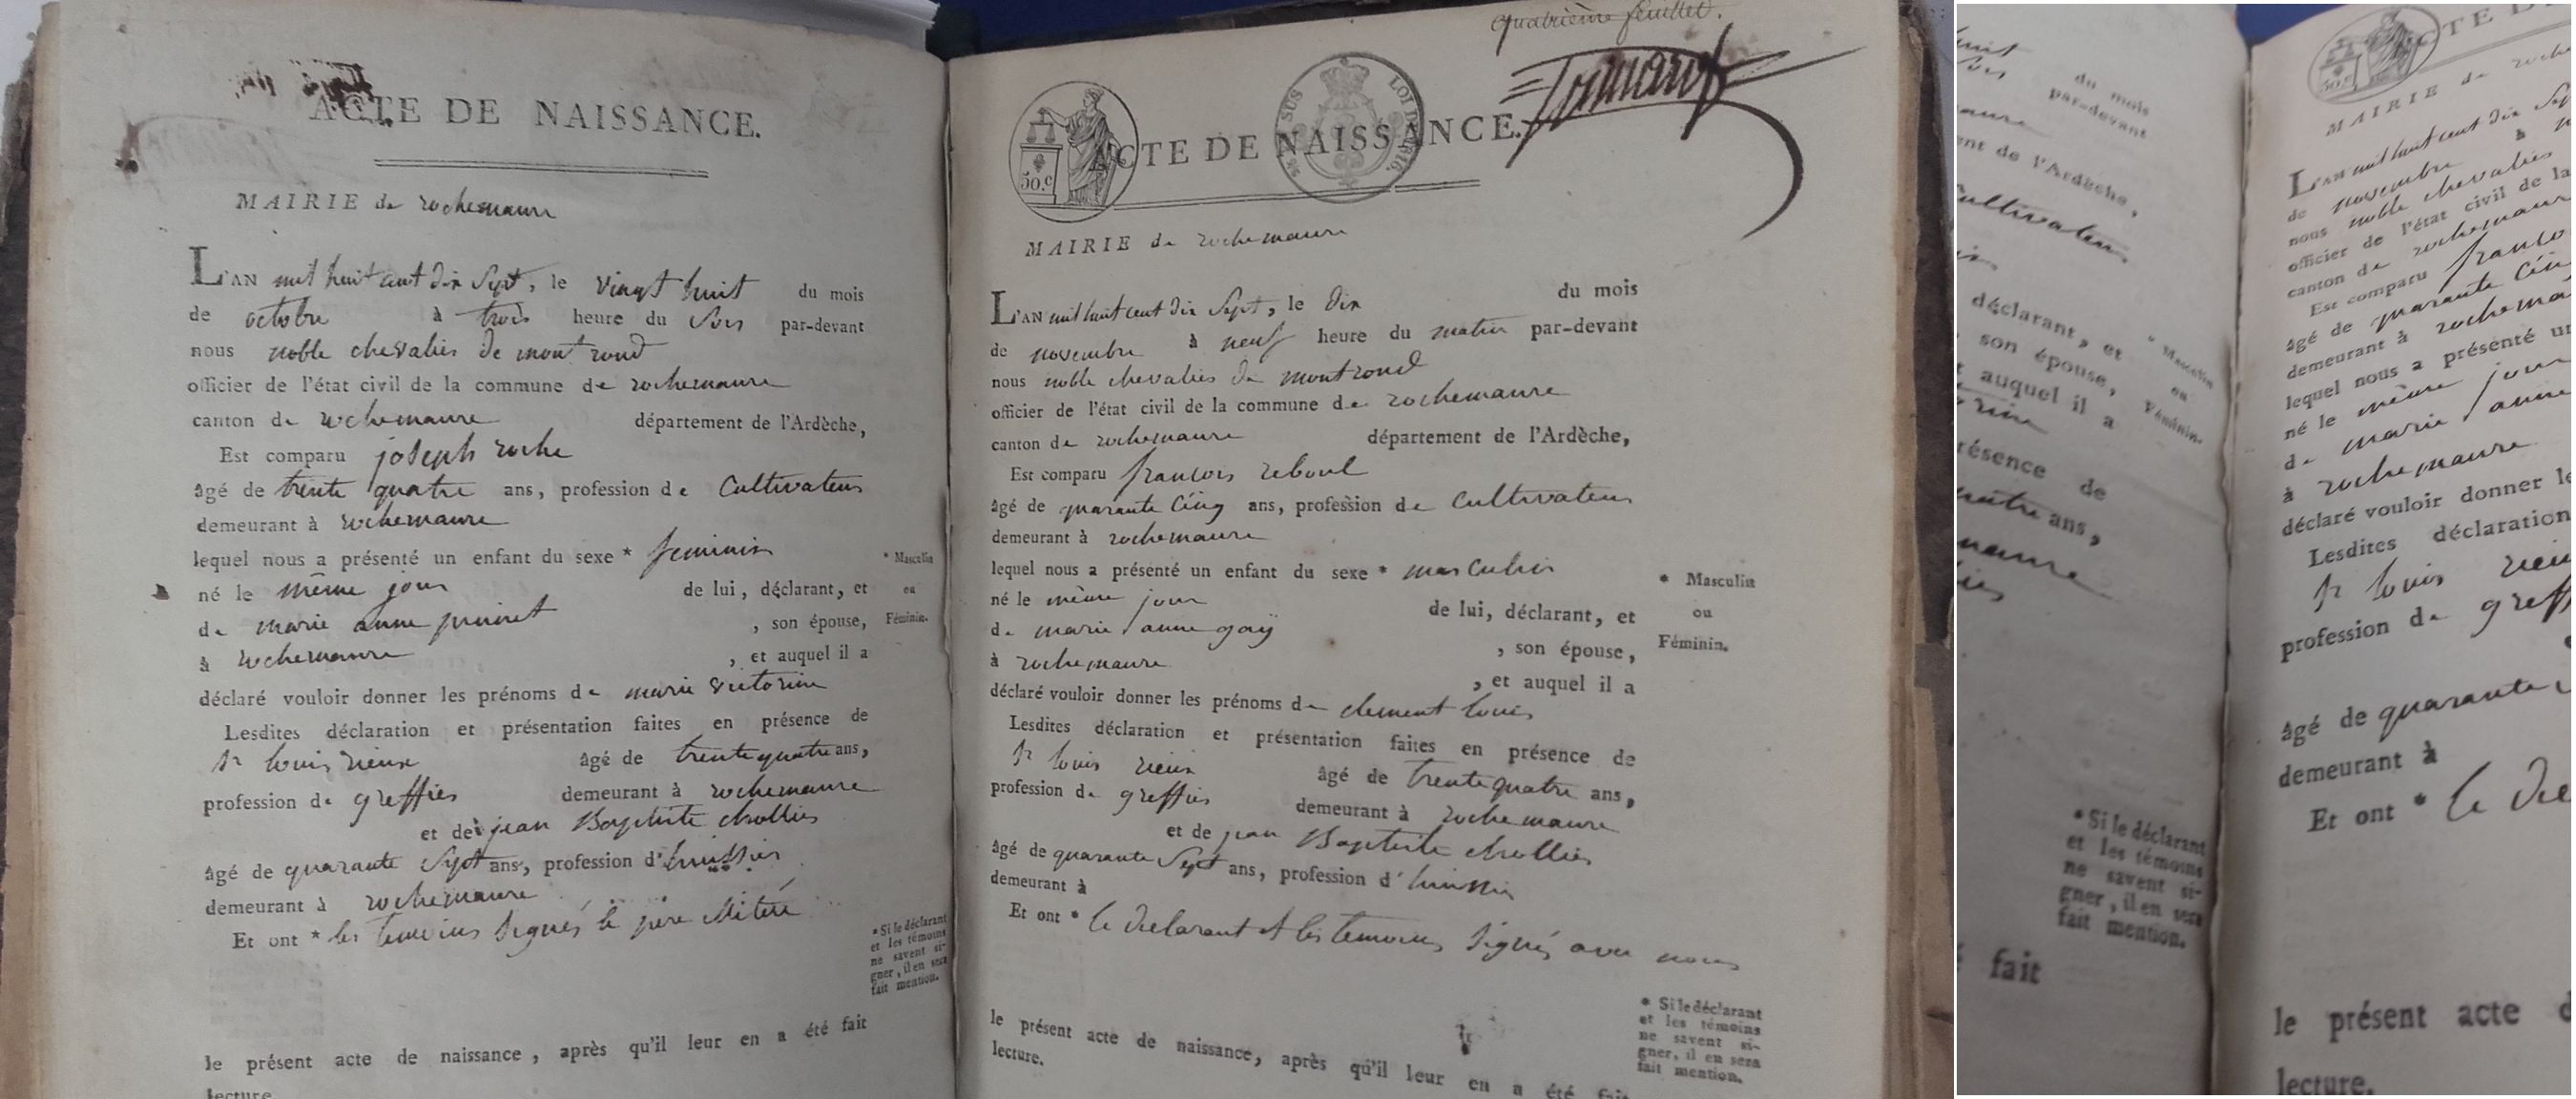 ACTE DE NAISSANCE.
MAIRIE de rochemaure
L'AN mil huit cent dix Sept, le vingt huit du mois
de octobre à trois heure du Soir par-devant
nous noble chevalier de mont rond
officier de l'état civil de la commune de rochemaure
canton de rochemaure département de l'Ardèche,
Est comparu joseph roche
âgé de trente quatre ans, profession de Cultivateur
demeurant à rochemaure
lequel nous a présenté un enfant du sexe * feminin
né le même jour de lui, déclarant, et
de marie anne , son épouse,
à rochemaure , et auquel il a
déclaré vouloir donner les prénoms de marie victorine
Lesdites déclaration et présentation faites en présence de
Sr louis rieux âgé de trente quatre ans,
profession de greffier demeurant à rochemaure
et de jean Baptiste chollier
âgé de quarante Sept ans, profession d'huissier
demeurant à rochemaure
Et ont * les temoins Signés le père
le présent acte de naissance, après qu'il leur en a été fait
lecture.
* Masculin
ou
Féminin.
* Si le déclarant
et les témoins
ne savent si-
gner, il en sera
fait mention.
quatrième feuillet.
50.c
EN SUS
LOI DE 1816.
ACTE DE NAISSANCE.
MAIRIE de rochemaure
L'AN mil huit cent dix Sept, le dix du mois
de novembre à neuf heure du matin par-devant
nous noble chevalier de montrond
officier de l'état civil de la commune de rochemaure
canton de rochemaure département de l'Ardèche,
Est comparu francois reboul
âgé de quarante Cinq ans, profession de Cultivateur
demeurant à rochemaure
lequel nous a présenté un enfant du sexe * masculin
né le même jour de lui, déclarant, et
de marie anne gaÿ , son épouse,
à rochemaure , et auquel il a
déclaré vouloir donner les prénoms de clement louis
Lesdites déclaration et présentation faites en présence de
Sr louis rieux âgé de trente quatre ans,
profession de greffier demeurant à rochemaure
et de jean Baptiste chollier
âgé de quarante Sept ans, profession d'huissier
demeurant à
Et ont * le declarant et les temoins Signés avec nous
le présent acte de naissance, après qu'il leur en a été fait
lecture.
* Masculin
ou
Féminin.
* Si le déclarant
et les témoins
ne savent si-
gner, il en sera
fait mention.
du mois
par-devant
de l'Ardèche,
Cultivateur
déclarant, et
son épouse,
auquel il a
de
quatre ans,
* Masculin
ou
Féminin.
* Si le déclarant
et les témoins
ne savent si-
gner, il en sera
fait mention.
fait
50.c
MAIRIE de
L'AN mil huit cent dix
de novembre à
nous noble chevalier
officier de l'état civil de la
canton de rochemaure
Est comparu
âgé de quarante
demeurant à
lequel nous a présenté
né le même jour
de marie anne
à rochemaure
déclaré vouloir donner
Lesdites déclaration
Sr louis
profession de
âgé de quarante
demeurant à
Et ont * le
le présent acte
lecture.